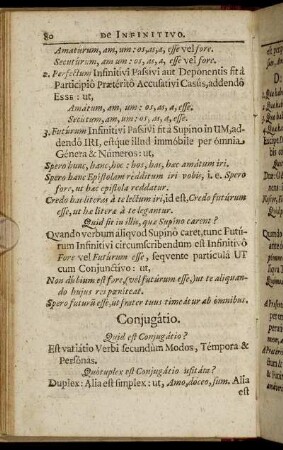 80 DE INFINITIVO.
Amaturum, am, um: os, as, a, esse vel fore.
Secuturum, am um: os, as, a, esse vel fore.
2. Perfectum Infinitivi Passivi aut Deponentis fit á
Participiô Præteritô Accusativi Casûs, addendô
ESSE: ut,
Amatum, am, um: os, as, a, esse.
Secutum, am, um: os, as, a, esse.
3. Futúrum Infinitivi Passivi fit á Supino in UM, ad-
dendô IRI, estque illud immóbile per ómnia
Génera & Números: ut,
Spero hunc, hanc, hoc: hos, has, hæc amatum iri.
Spero hanc Epistolam redditum iri vobis, i. e. Spero
fore, ut hæc epistola reddatur.
Credo has literas à te lectum iri, id est, Credo futurum
esse, ut hæ literæ à te legantur.
Quid fit iu illis, quæ Supino carent?
Qvando verbum aliqvod Supinô caret, tunc Futú-
rum Infinitivi circumscribendum est Infinitivô
Fore vel Futúrum esse, seqvente particulâ UT
cum Conjunctívo: ut,
Non dubium est fore, (vel futurum esse,) ut te aliquan-
do hujus resρœniteat.
Spero futurũ esse, ut frater tuus timeatur ab omnibus.
Conjugátio.
Quid est Conjugátio?
Est variátio Verbi secundùm Modos, Témpora &
Persónas.
Quotuplex est Conjugátio usitáta?
Duplex: Alia est simplex: ut, Amo, doceo, sum. Alia
est